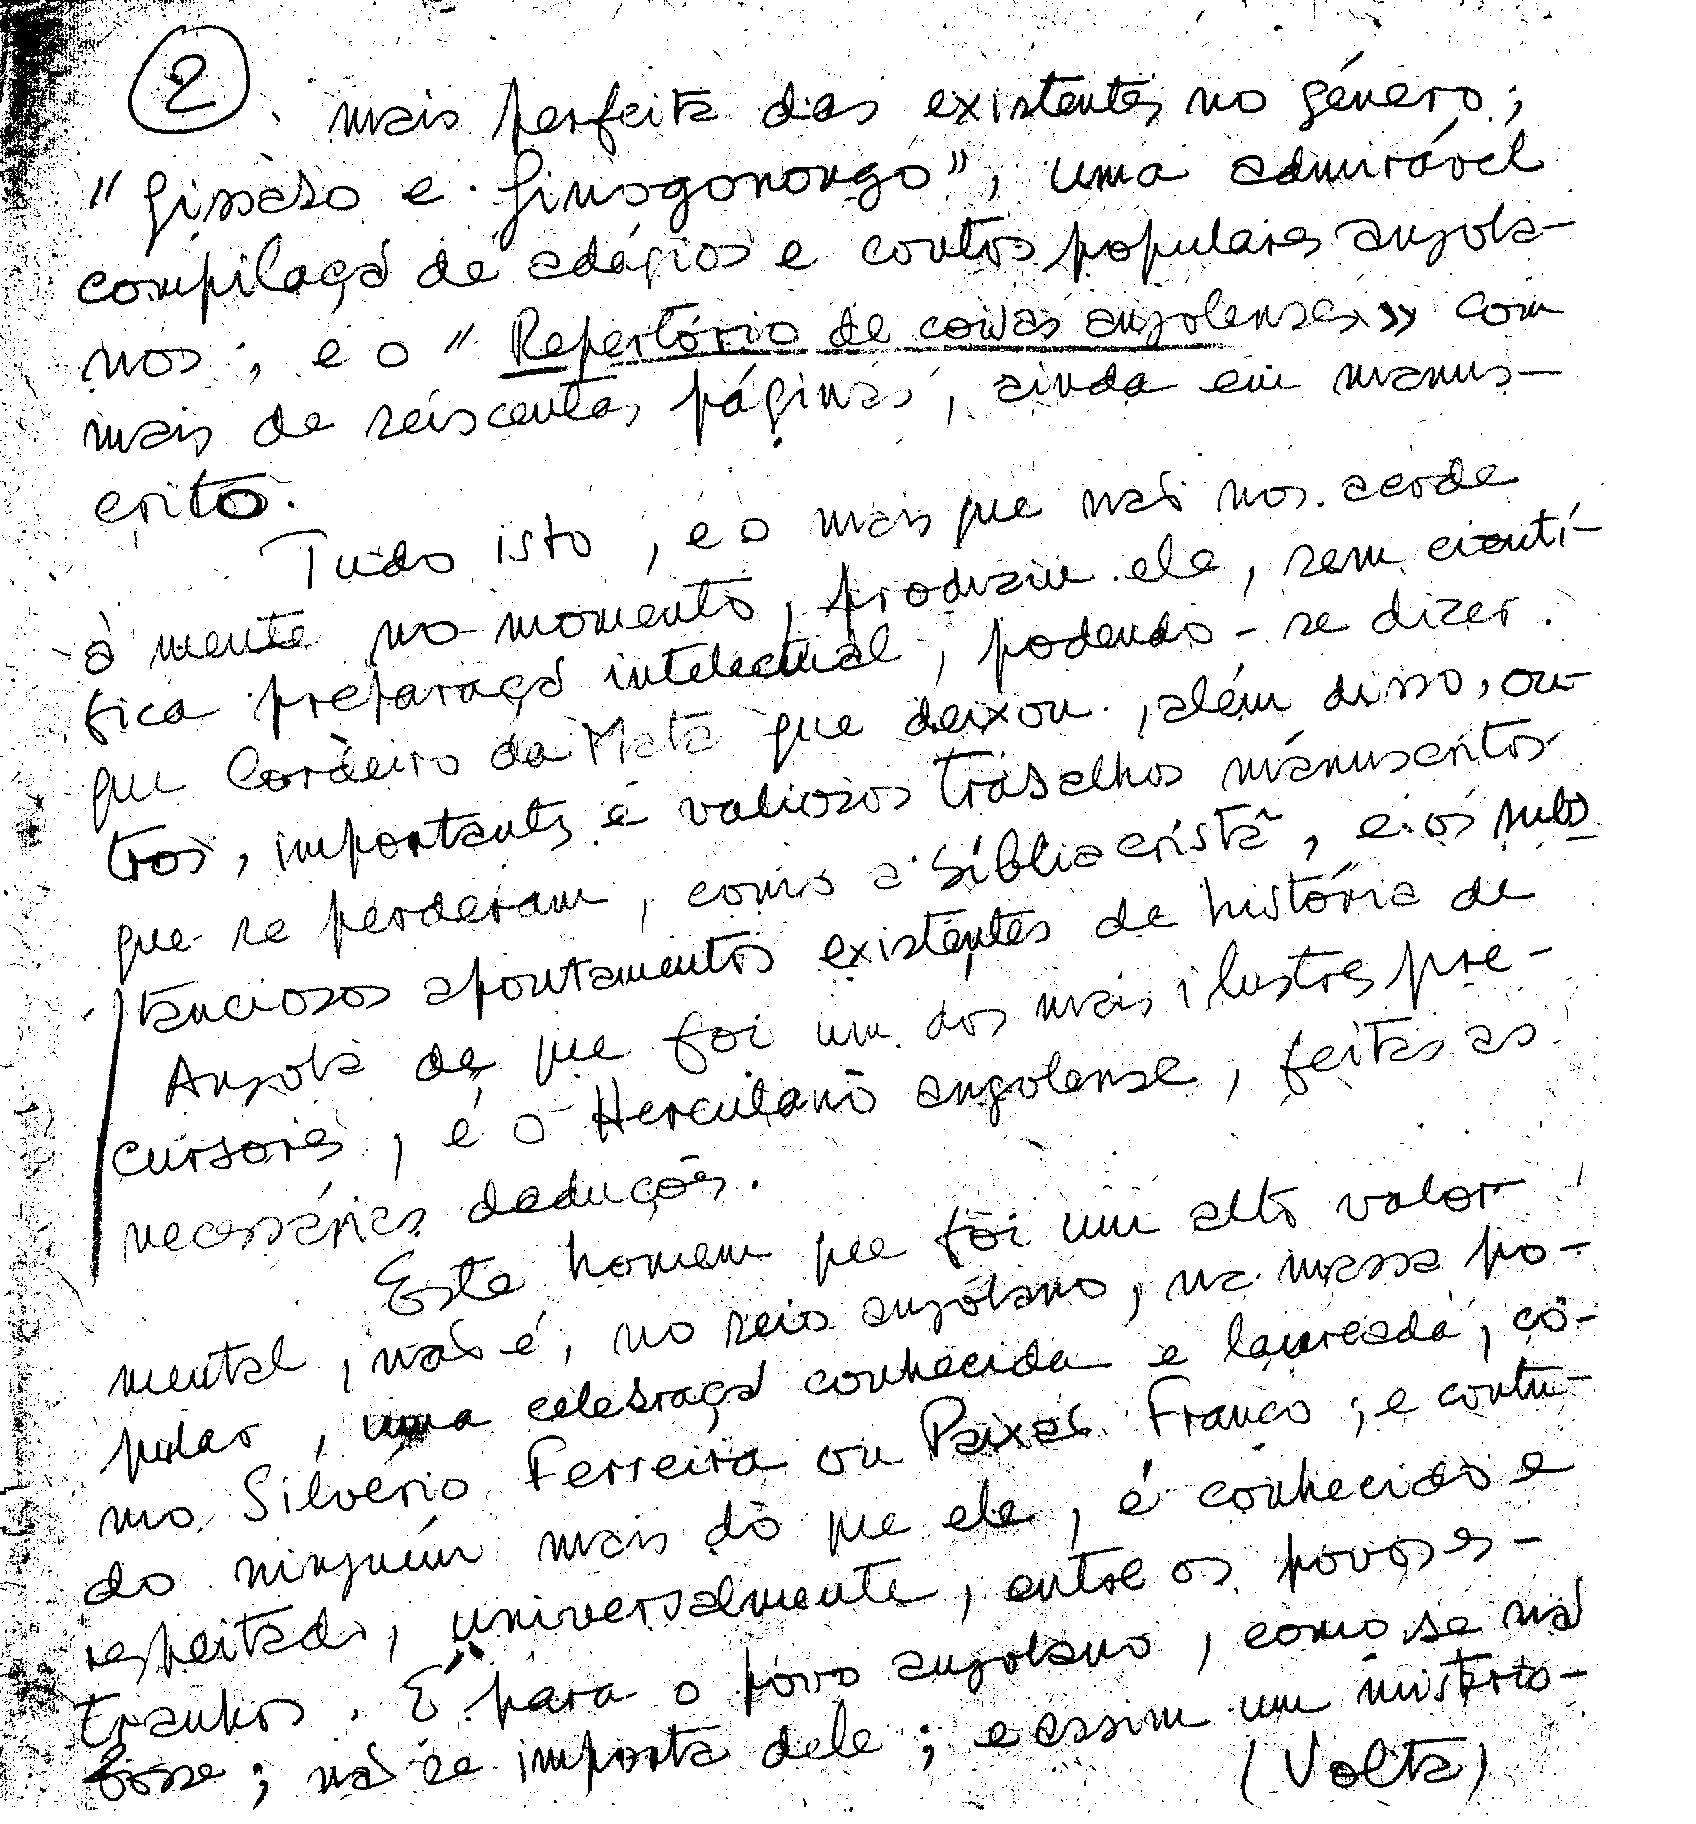 2
mais perfeita das existentes no género;
"Jissabo e Jinogonongo", uma admirável
compilaçã de adágios e contos populares angola-
nos; e o "Repertório de coisas angolenses» com
mais de seiscentas páginas, ainda em manus-
crito.
Tudo isto, e o mais que não nos acode
à mente no momento, produziu ele, sem cientí-
fica preparaçã intelectual, podendo-se dizer
que Cordeiro da Mata que deixou, além disso, ou-
tros, importantes e valiosos trabalhos manuscritos
que se perderam, como a Bíblia cristã, e os subs
tanciosos apontamentos existentes de história de
Angola de que foi um dos mais ilustres pre-
cursores, é o Herculano angolense, feitas as
necessárias deduções.
Este homem que foi um alto valor
mental, não é, no seio angolano, na massa po-
pular, uma celebraçã conhecida e laureada, co-
mo Silvério Ferreira ou Paixão Franco; e contu-
do ninguém mais do que ele, é conhecido e
respeitado, universalmente, entre os povos es-
tranhos. É para o povo angolano, como se nã
fosse; nã se importa dele; e assim um misterio-
(Volta)